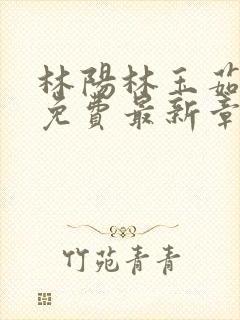 林陽林玉茹
免費最新章
竹苑青青